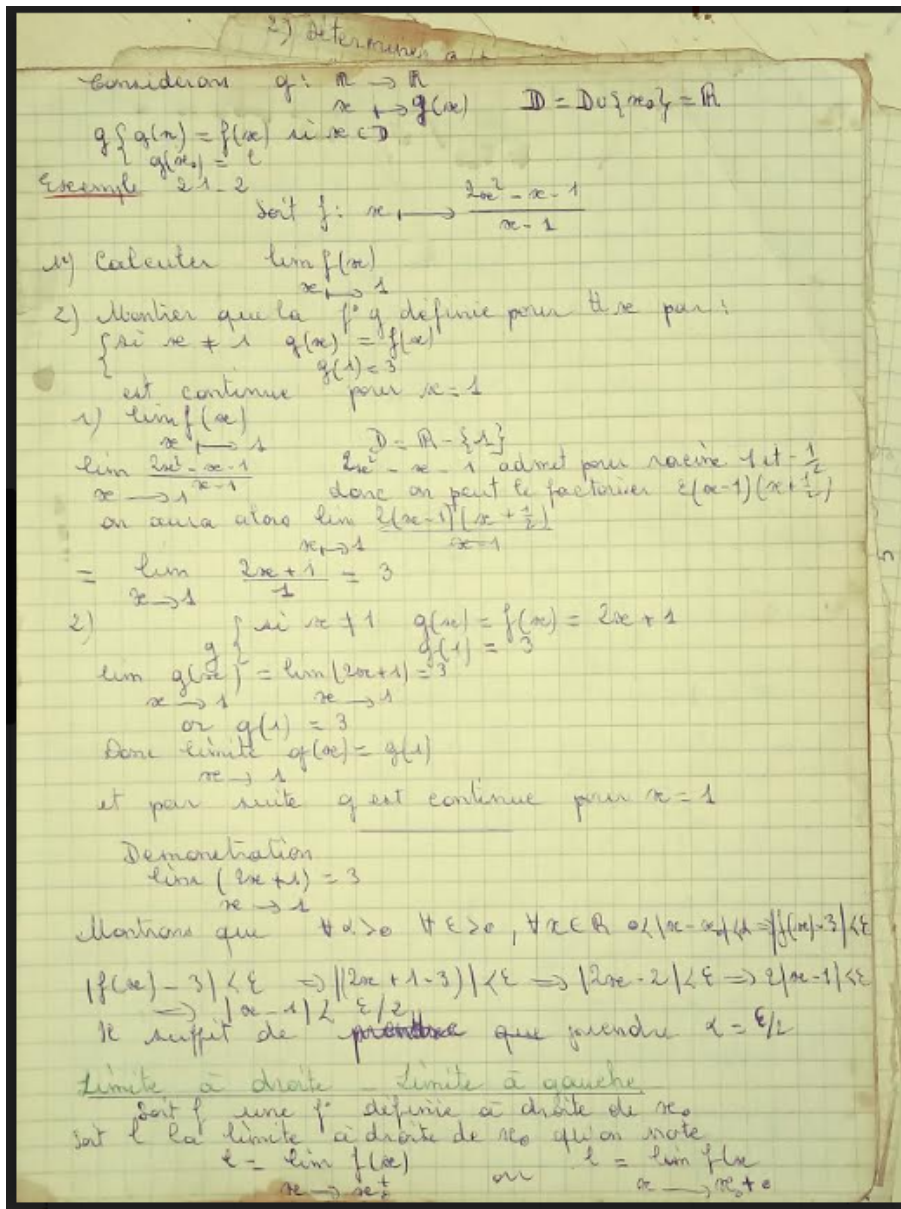 2) Déterminer
Considerons g: ℝ → ℝ
x ↦ g(x) D = D∪{x₀} = ℝ
g { g(x) = f(x) si x ∈ D
{ g(x₀) = l
Exemple 2 1 - 2
Soit f: x ↦ (2x² - x - 1)/(x - 1)
1) Calculer lim f(x)
x ↦ 1
2) Montrer que la f° g définie pour tt x par :
{ si x ≠ 1 g(x) = f(x)
g(1) = 3
est continue pour x = 1
1) lim f(x)
x ↦ 1 D = ℝ - {1}
lim (2x² - x - 1)/(x - 1) 2x² - x - 1 admet pour racine 1 et -1/2
x → 1 donc on peut le factoriser 2(x-1)(x+1/2)
on aura alors lim 2(x-1)(x + 1/2)/(x-1)
x ↦ 1
= lim (2x+1)/1 = 3
x → 1
2) g { si x ≠ 1 g(x) = f(x) = 2x + 1
g(1) = 3
lim g(x) = lim (2x+1) = 3
x → 1 x → 1
or g(1) = 3
Donc limite g(x) = g(1)
x → 1
et par suite g est continue pour x = 1
Demonstration
lim (2x+1) = 3
x → 1
Montrons que ∀ α>0 ∀ ε>0, ∀x∈ℝ 0<|x-x₀|<α ⇒ |f(x)-3|<ε
|f(x) - 3| < ε ⇒ |(2x+1-3)| < ε ⇒ |2x-2| < ε ⇒ 2|x-1| < ε
⇒ |x-1| < ε/2
Il suffit de que prendre α = ε/2
Limite à droite - Limite à gauche
Soit f une f° définie à droite de x₀
Soit l la limite à droite de x₀ qu'on note
l = lim f(x) ou l = lim f(x
x → x₀⁺ x → x₀+0
5